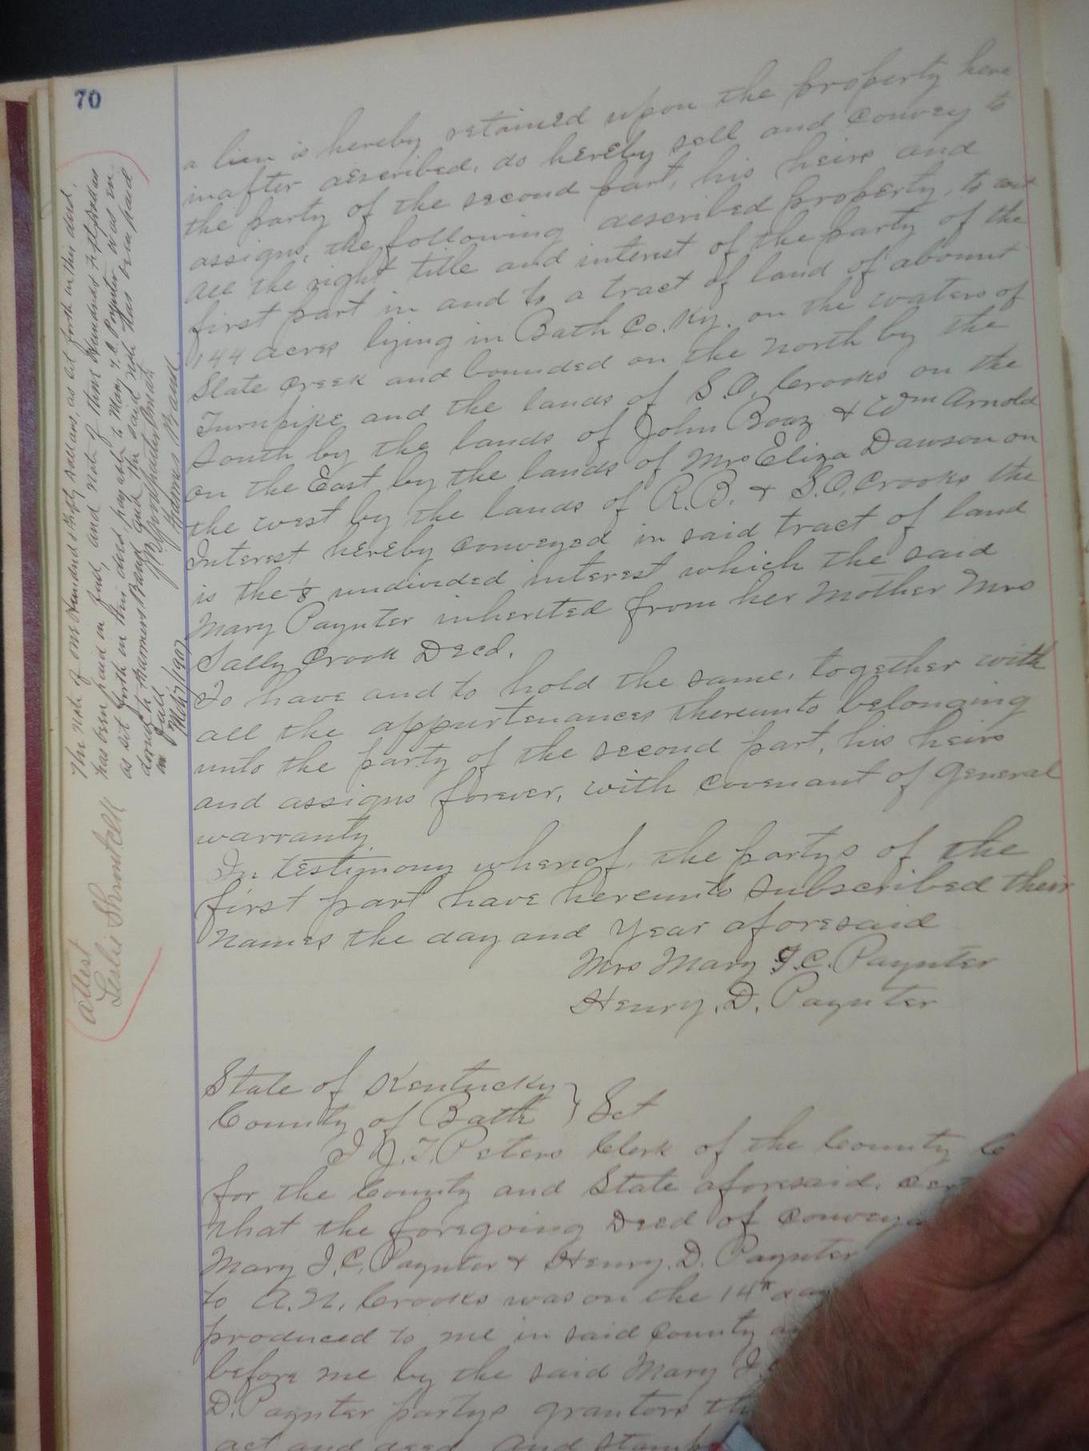 70
a lien is hereby retained upon the property here
inafter described, do hereby sell and convey to
the party of the second part, his heirs and
assigns, the following described property, to wit
all the right title and interest of the party of the
first part in and to a tract of land of abount
144 acres lying in Bath Co. Ky. on the waters of
Slate Creek and bounded on the North by the
Turnpike and the lands of S.O. Crooks on the
South by the lands of John Boaz & Wm Arnold
on the East by the lands of Mrs Eliza Dawson on
the west by the lands of R.B. & S.O. Crooks the
Interest hereby conveyed in said tract of land
is the undivided interest which the said
Mary Paynter inherited from her Mother Mrs
Sally Crook Decd.
To have and to hold the same, together with
all the appurtenances thereunto belonging
unto the party of the second part, his heirs
and assigns forever, with Covenant of General
warranty.
In testimony whereof, the partys of the
first part have hereunto subscribed their
names the day and Year aforesaid
Mrs Mary J.C. Paynter
Henry. D. Paynter
State of Kentucky }
County of Bath } Sct
I J.T. Peters Clerk of the County
for the County and State aforesaid,
that the foregoing Deed of
Mary J.C. Paynter & Henry. D. Paynter
to A.N. Crooks was on the 14th day
produced to me in said County
before me by the said Mary
D. Paynter partys grantors
act and deed and
The note of one Hundred & fifty dollars, as set forth in this deed,
has been paid in full, and note of three Hundred & fifty dollars
as set forth in this deed payable to Mary J.C. Paynter was
Farmers Bank and the said note has been paid
in full
Mch 7/1907
Farmers Bank
attest
Leslie Shrout